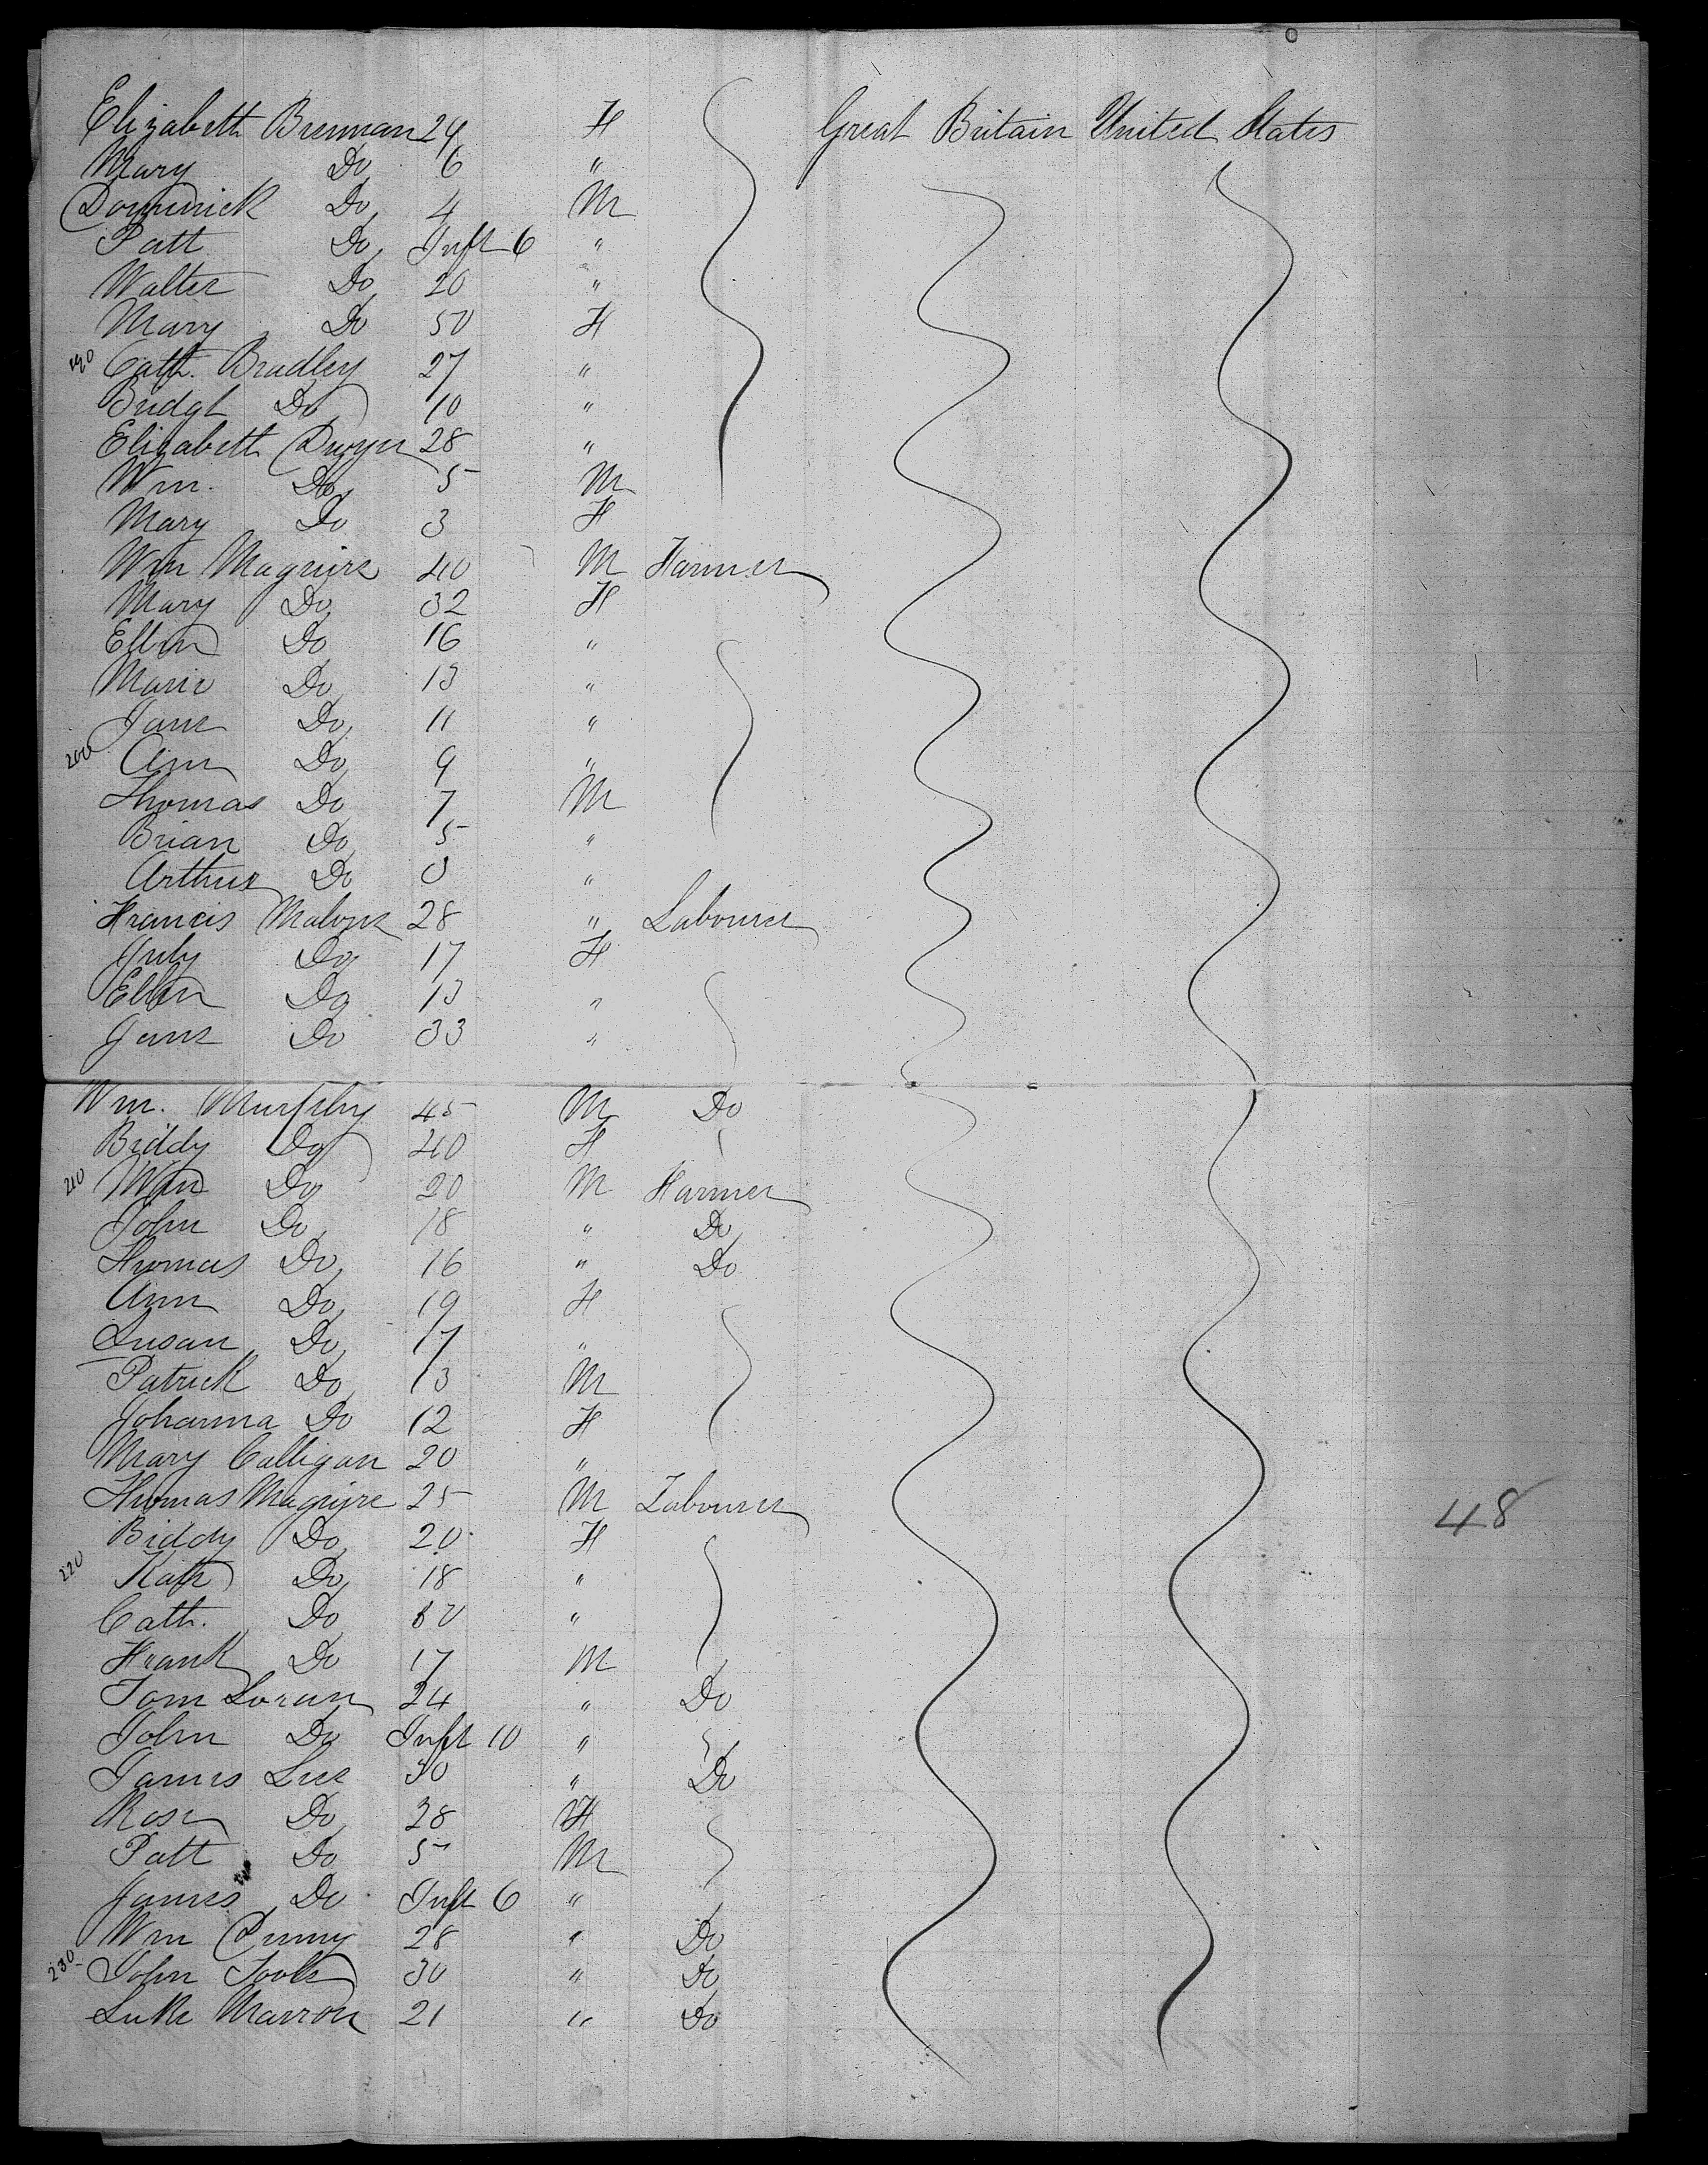 Elizabeth Brennan 29 F Great Britain United States
Mary Do 6 "
Dominick Do 4 M
Patt Do Inft 6 "
Walter Do 20 "
Mary Do 50 F
190 Cath. Bradley 27 "
Bridgt Do 10 "
Elizabeth Dwyer 28 "
Wm. Do 5 M
Mary Do 3 F
Wm Maguire 40 M Farmer
Mary Do 32 F
Ellen Do 16 "
Maria Do 13 "
Jane Do 11 "
200 Ann Do 9 "
Thomas Do 7 M
Brian Do 5 "
Arthur Do 3 "
Francis Malone 28 " Labourer
July Do 17 F
Ellen Do 13 "
Jane Do 33 "
Wm. Murphy 45 M Do
Biddy Do 40 F
210 Wm Do 20 M Farmer
John Do 18 " Do
Thomas Do 16 " Do
Ann Do 19 F
Susan Do 17 "
Patrick Do 13 M
Johanna Do 12 F
Mary Calligan 20 "
Thomas Maguire 25 M Labourer
Biddy Do 20 F
220 Kath Do 18 "
Cath. Do 60 "
Frank Do 17 M
Tom Loran 24 " Do
John Do Inft 10 "
James Lee 30 " Do
Rose Do 28 F
Patt Do 5 M
James Do Inft 6 "
Wm 28 " Do
230 John Toole 30 " Do
Luke Marron 21 " Do
48